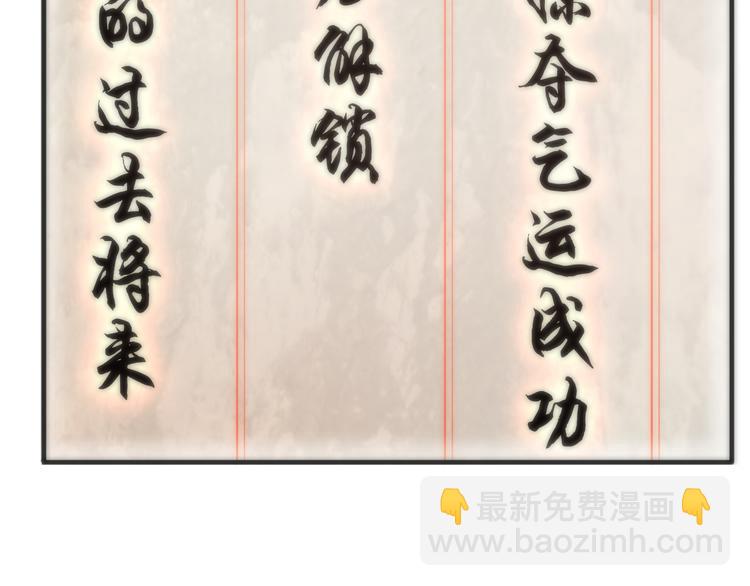 夺气运成功
解锁
的过去将来
👇最新免费漫画👇
www.baozimh.com